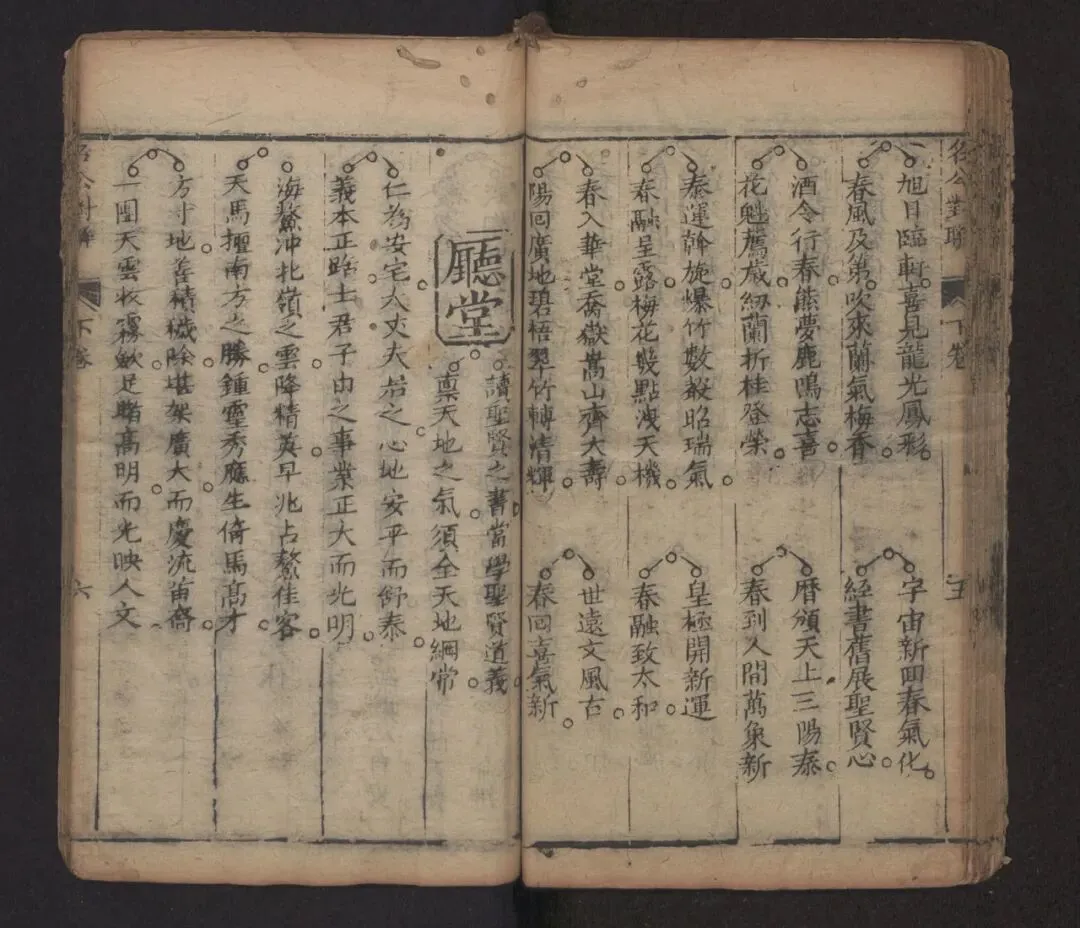 名公對聯 下卷 五
旭日臨軒喜見龍光鳳彩
春風及第吹來蘭氣梅香
酒令行春熊夢鹿鳴志喜
花魁薦歲紉蘭折桂登榮
泰運幹旋爆竹數聲昭瑞氣
春融呈露梅花幾點洩天機
春入華堂喬嶽嵩山齊大壽
陽回廣地碧梧翠竹轉清輝
宇宙新回春氣化
經書舊展聖賢心
曆頒天上三陽泰
春到人間萬象新
皇極開新運
春融致太和
世遠文風古
春回喜氣新
廳堂
讀聖賢之書當學聖賢道義
稟天地之氣須全天地綱常
仁為安宅大丈夫居之心地安平而舒泰
義本正路士君子由之事業正大而光明
海鰲沖北嶺之雲降精英早兆占鰲佳客
天馬擅南方之勝鍾靈秀應生倚馬高才
方寸地善積穢除堪架廣大而慶流苗裔
一團天雲收霧斂足睹高明而光映人文
名公對聯 下卷 六